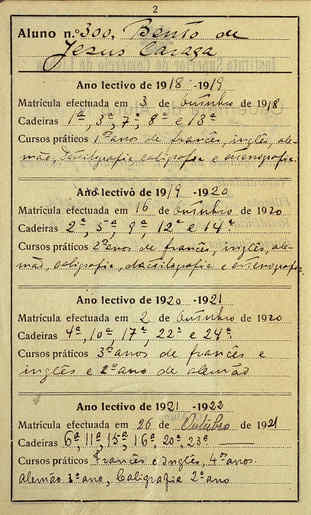 2
Aluno n.º 300, Bento de
Jesus Caraça
Ano lectivo de 1918-1919
Matrícula efectuada em 3 de Outubro de 1918
Cadeiras 1ª, 3ª, 7ª, 8ª e 13ª
Cursos práticos 1ºs anos de francês, inglês, ale-
mão, dactilografia, caligrafia e estenografia.
Ano lectivo de 1919-1920
Matrícula efectuada em 16 de Outubro de 1920
Cadeiras 2ª, 5ª, 9ª, 12ª e 14ª
Cursos práticos 2ºs anos de francês, inglês, ale-
mão, caligrafia, dactilografia e estenografia
Ano lectivo de 1920-1921
Matrícula efectuada em 2 de Outubro de 1920
Cadeiras 4ª, 10ª, 17ª, 22ª e 24ª
Cursos práticos 3ºs anos de francês e
inglês e 2º ano de alemão
Ano lectivo de 1921-1922
Matrícula efectuada em 26 de Outubro de 1921
Cadeiras 6ª, 11ª, 15ª, 16ª, 20ª, 23ª
Cursos práticos Francês e Inglês, 4ºs anos.
Alemão 3º ano, Caligrafia 2º ano